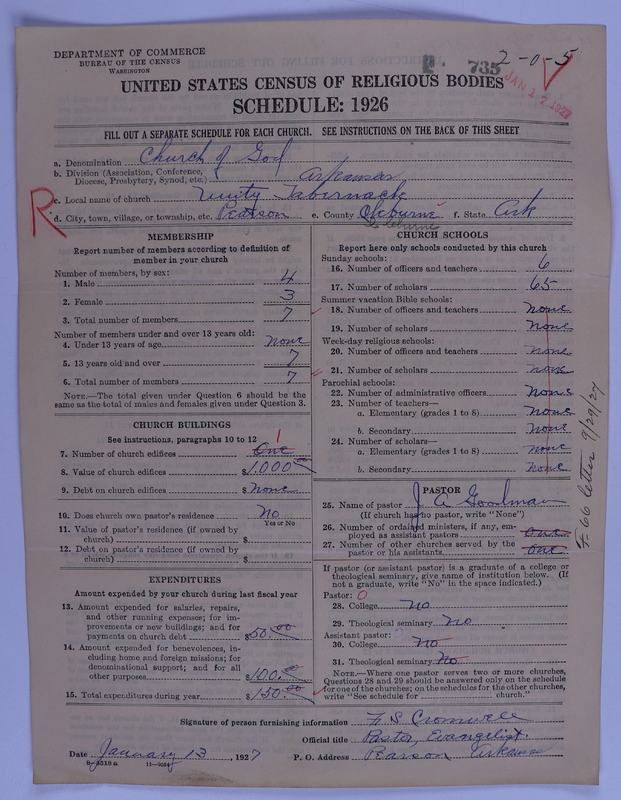 DEPARTMENT OF COMMERCE
BUREAU OF THE CENSUS
WASHINGTON
735
2-0-5
JAN 17 1927
UNITED STATES CENSUS OF RELIGIOUS BODIES
SCHEDULE: 1926
FILL OUT A SEPARATE SCHEDULE FOR EACH CHURCH. SEE INSTRUCTIONS ON THE BACK OF THIS SHEET
a. Denomination Church of God
b. Division (Association, Conference, Diocese, Presbytery, Synod, etc.) Arkansas
c. Local name of church Unity Tabernacle
R
d. City, town, village, or township, etc. Pearson e. County Cleburne f. State Ark
Cleburne
MEMBERSHIP
Report number of members according to definition of
member in your church
Number of members, by sex:
1. Male 4
2. Female 3
3. Total number of members 7
Number of members under and over 13 years old:
4. Under 13 years of age none
5. 13 years old and over 7
6. Total number of members 7
NOTE.—The total given under Question 6 should be
same as the total of males and females given under Question 3.
CHURCH BUILDINGS
See instructions, paragraphs 10 to 12
7. Number of church edifices One 1
8. Value of church edifices $1,000.00
9. Debt on church edifices $ None
10. Does church own pastor's residence No
Yes or No
11. Value of pastor's residence (if owned by
church) $
12. Debt on pastor's residence (if owned by
church) $
EXPENDITURES
Amount expended by your church during last fiscal year
13. Amount expended for salaries, repairs,
and other running expenses; for im-
provements or new buildings; and for
payments on church debt $50.00
14. Amount expended for benevolences, in-
cluding home and foreign missions; for
denominational support; and for all
other purposes $100.00
15. Total expenditures during year $150.00
CHURCH SCHOOLS
Report here only schools conducted by this church
Sunday schools:
16. Number of officers and teachers 6
17. Number of scholars 65
Summer vacation Bible schools:
18. Number of officers and teachers none
19. Number of scholars none
Week-day religious schools:
20. Number of officers and teachers none
21. Number of scholars none
Parochial schools:
22. Number of administrative officers none
23. Number of teachers—
a. Elementary (grades 1 to 8) none
b. Secondary none
24. Number of scholars—
a. Elementary (grades 1 to 8) none
b. Secondary none
PASTOR
25. Name of pastor J A Goodman
(If church has no pastor, write "None")
26. Number of ordained ministers, if any, em-
ployed as assistant pastors one
27. Number of other churches served by the
pastor or his assistants one
If pastor (or assistant pastor) is a graduate of a college or
theological seminary, give name of institution below. (If
not a graduate, write "No" in the space indicated.)
Pastor: 0
28. College no
29. Theological seminary no
Assistant pastor:
30. College no
31. Theological seminary no
NOTE.—Where one pastor serves two or more churches,
Questions 28 and 29 should be answered only on the schedule
for one of the churches; on the schedules for the other churches,
write "See schedule for church."
F. 66 letter 9/29/27
Signature of person furnishing information F. S. Cromwell
Official title Pastor, Evangelist
Date January 13, 1927 P. O. Address Arkansas
8-5518a 11-9054